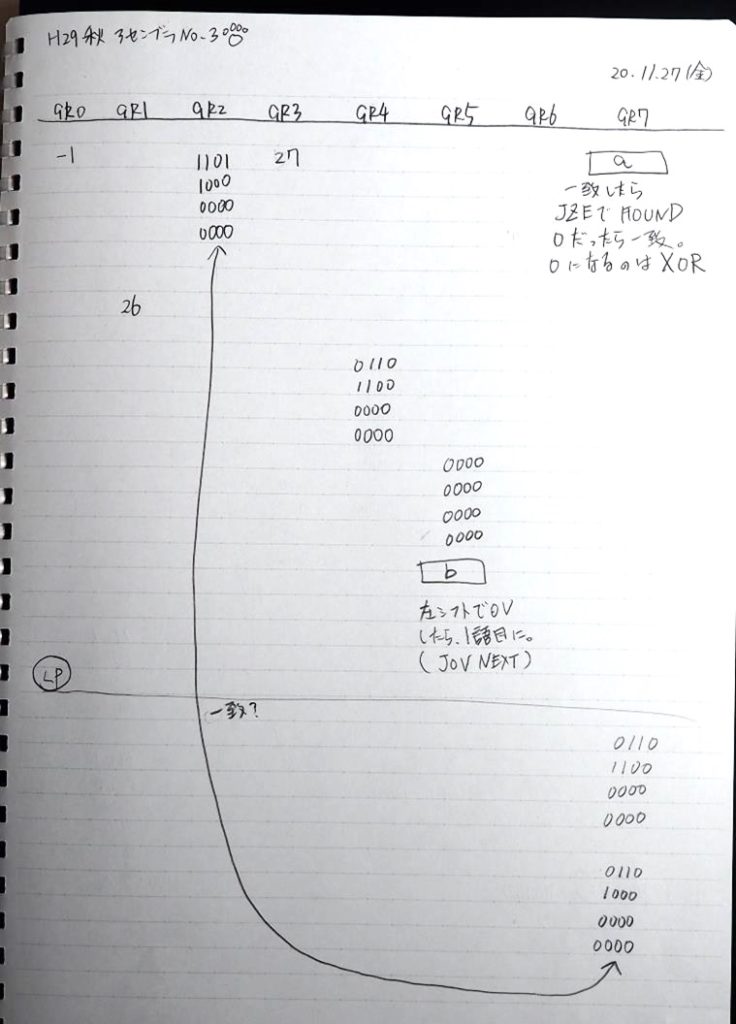 H29秋 アセンブラNo.3
20.11.27(金)
GR0 GR1 GR2 GR3 GR4 GR5 GR6 GR7
-1 1101 27 a
1000
0000
0000
一致したら
JZEで FOUND
0だったら一致。
0になるのはXOR
26
0110
1100
0000
0000
0000
0000
0000
0000
b
左シフトでOV
したら、1語目に。
(JOV NEXT)
LP
一致?
0110
1100
0000
0000
0110
1000
0000
0000